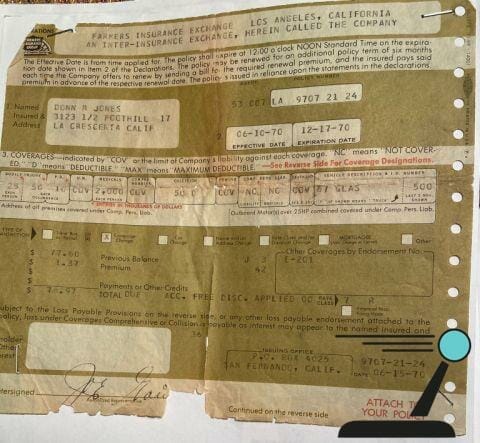 FARMERS INSURANCE EXCHANGE LOS ANGELES, CALIFORNIA
AN INTER-INSURANCE EXCHANGE, HEREIN CALLED THE COMPANY
The Effective Date is from time applied for. The policy shall expire at 12:00 o'clock NOON Standard Time on the expira-
tion date shown in Item 2 of the Declarations. The policy may be renewed for an additional policy term of six months
each time the Company offers to renew by sending a bill for the required renewal premium, and the insured pays said
premium in advance of the respective renewal date. The policy is issued in reliance upon the statements in the declarations.
53 007 LA 9707 21 24
1. Named
Insured &
Address
DONN R JONES
3123 1/2 FOOTHILL 17
LA CRESCENTA CALIF
2.
06-10-70 12-17-70
EFFECTIVE DATE EXPIRATION DATE
3. COVERAGES—indicated by "COV" or the limit of Company's liability against each coverage. "NC" means "NOT COVER-
ED." "D" means "DEDUCTIBLE" "MAX" means "MAXIMUM DEDUCTIBLE" —See Reverse Side For Coverage Designations.
25 50 10 COV 2,000 COV 50 D COV NC NC COV 67 GLAS 500
ENTRIES IN THOUSANDS OF DOLLARS
Address of all premises covered under Comp. Pers. Liab.
Outboard Motor(s) over 25HP combined covered under Comp. Pers. Liab.
TYPE OF
X Coverage Change
Car Change
Name and/or Address Change
MORTGAGEE
Other
$ 77.60 Previous Balance
$ 1.37 Premium
$ Payments or Other Credits
$ 78.97 TOTAL DUE ACC. FREE DISC. APPLIED
J 3
42
Other Coverages by Endorsement No.
E-201
CLASS 7 R
Subject to the Loss Payable Provisions on the reverse side, or any other loss payable endorsement attached to the
policy, loss under Coverages Comprehensive or Collision is payable as interest may appear to the named insured and
36
Other
ISSUING OFFICE
P.O. BOX 4025
SAN FERNANDO, CALIF.
9707-21-24
DATE 06-15-70
Continued on the reverse side
ATTACH TO
YOUR POLICY